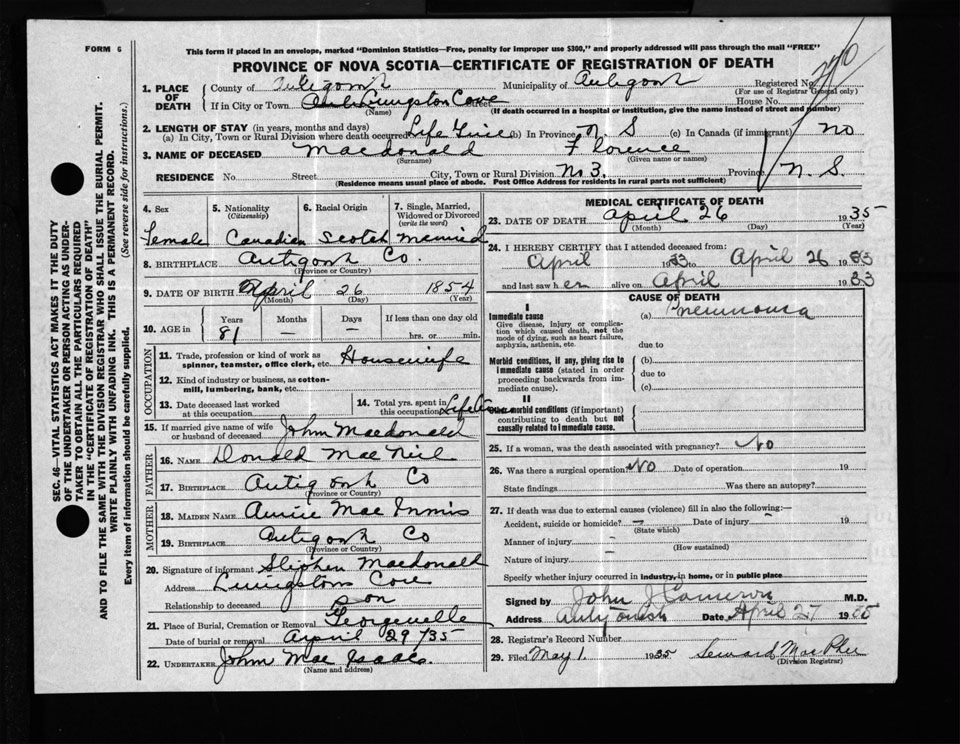 FORM 6
This form if placed in an envelope, marked "Dominion Statistics—Free, penalty for improper use $300," and properly addressed will pass through the mail "FREE"
PROVINCE OF NOVA SCOTIA—CERTIFICATE OF REGISTRATION OF DEATH
SEC. 46—VITAL STATISTICS ACT MAKES IT THE DUTY
OF THE UNDERTAKER OR PERSON ACTING AS UNDER-
TAKER TO OBTAIN ALL THE PARTICULARS REQUIRED
IN THE "CERTIFICATE OF REGISTRATION OF DEATH"
AND TO FILE THE SAME WITH THE DIVISION REGISTRAR WHO SHALL ISSUE THE BURIAL PERMIT.
WRITE PLAINLY WITH UNFADING INK. THIS IS A PERMANENT RECORD.
Every item of information should be carefully supplied. (See reverse side for instructions.)
1. PLACE OF DEATH
County of Antigonish Municipality of Antigonish Registered No.
(For use of Registrar General only)
If in City or Town Livingston Cove Street House No.
(Name) (If death occurred in a hospital or institution, give the name instead of street and number)
2. LENGTH OF STAY (in years, months and days)
(a) In City, Town or Rural Division where death occurred Life Time (b) In Province N. S (c) In Canada (if immigrant) no
3. NAME OF DECEASED Macdonald Florence
(Surname) (Given name or names)
RESIDENCE No. Street City, Town or Rural Division No 3. Province N. S.
(Residence means usual place of abode. Post Office Address for residents in rural parts not sufficient)
4. Sex 5. Nationality (Citizenship) 6. Racial Origin 7. Single, Married, Widowed or Divorced (write the word)
Female Canadian Scotch Married
8. BIRTHPLACE Antigonish Co.
(Province or Country)
9. DATE OF BIRTH April 26 1854
(Month) (Day) (Year)
10. AGE in Years Months Days If less than one day old
81 — — hrs. or min.
OCCUPATION
11. Trade, profession or kind of work as spinner, teamster, office clerk, etc. Housewife
12. Kind of industry or business, as cotton-mill, lumbering, bank, etc.
13. Date deceased last worked at this occupation 14. Total yrs. spent in this occupation Lifetime
15. If married give name of wife or husband of deceased John Macdonald
FATHER
16. NAME Donald Mac Neil
17. BIRTHPLACE Antigonish Co
(Province or Country)
MOTHER
18. MAIDEN NAME Annie Mac Innis
19. BIRTHPLACE Antigonish Co
(Province or Country)
20. Signature of informant Stephen Macdonald
Address Livingstons Cove
Relationship to deceased Son
21. Place of Burial, Cremation or Removal Georgeville
Date of burial or removal April 29 /35
22. UNDERTAKER John Mac Isaac.
(Name and address)
MEDICAL CERTIFICATE OF DEATH
23. DATE OF DEATH April 26 1935
(Month) (Day) (Year)
24. I HEREBY CERTIFY that I attended deceased from:
April 1933 to April 26 1933
and last saw her alive on April 1933
CAUSE OF DEATH
I
Immediate cause
Give disease, injury or complication which caused death, not the mode of dying, such as heart failure, asphyxia, asthenia, etc.
(a) Pneumonia
due to
Morbid conditions, if any, giving rise to immediate cause (stated in order proceeding backwards from immediate cause).
(b)
due to
(c)
II
Other morbid conditions (if important) contributing to death but not causally related to immediate cause.
25. If a woman, was the death associated with pregnancy? No
26. Was there a surgical operation No Date of operation 19
State findings Was there an autopsy?
27. If death was due to external causes (violence) fill in also the following:—
Accident, suicide or homicide? — Date of injury — 19
(State which)
Manner of injury –
(How sustained)
Nature of injury –
Specify whether injury occurred in industry, in home, or in public place
Signed by John J Cameron M.D.
Address Antigonish Date April 27 19
28. Registrar's Record Number
29. Filed May 1. 1935
(Division Registrar)